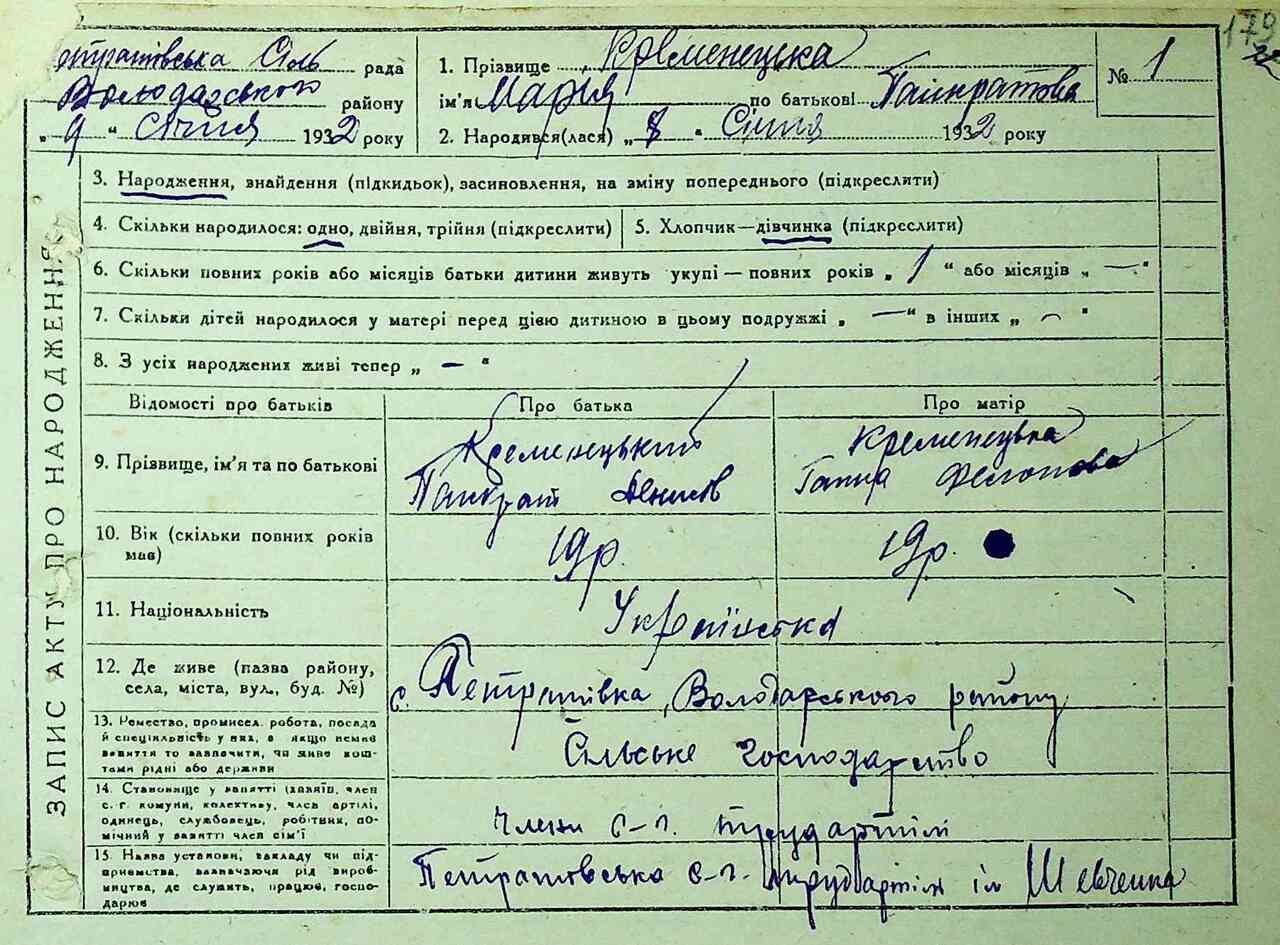 179
етрашівська Сіль рада
Володарського району
„ 9 “ Січня 1932 року
1. Прізвище Кременецька
ім'я Мария по батькові Панкратова
2. Народився(лася) „ 8 “ Січня 1932 року
№ 1
ЗАПИС АКТУ ПРО НАРОДЖЕННЯ
3. Народження, знайдення (підкидьок), засиновлення, на зміну попереднього (підкреслити)
4. Скільки народилося: одно, двійня, трійня (підкреслити)
5. Хлопчик—дівчинка (підкреслити)
6. Скільки повних років або місяців батьки дитини живуть укупі — повних років „ 1 “ або місяців „ — “
7. Скільки дітей народилося у матері перед цією дитиною в цьому подружжі „ — “ в інших „ — “
8. З усіх народжених живі тепер „ — “
Відомості про батьків Про батька Про матір
9. Прізвище, ім'я та по батькові
Кременецький
Панкрат Денисов
Кременецька
Ганна
10. Вік (скільки повних років
мав)
19р.
19р.
11. Національність
Українська
12. Де живе (назва району,
села, міста, вул., буд. №)
с. Петрашівка, Володарського району
13. Ремество, промисел, робота, посада
й спеціяльність у них, а якщо немає
заняття то зазначити, чи живе кош-
тами рідні або держави
Сільське господарство
14. Становище у занятті (хазяїн, член
с. г. комуни, колективу, член артілі,
одинець, службовець, робітник, по-
мічний у занятті член сім'ї
Члени с-г. трудартілі
15. Назва установи, закладу чи під-
приємства, зазначаючи рід вироб-
ництва, де служить, працює, госпо-
дарює
Петрашовська с-г. трудартіль ім Шевченка